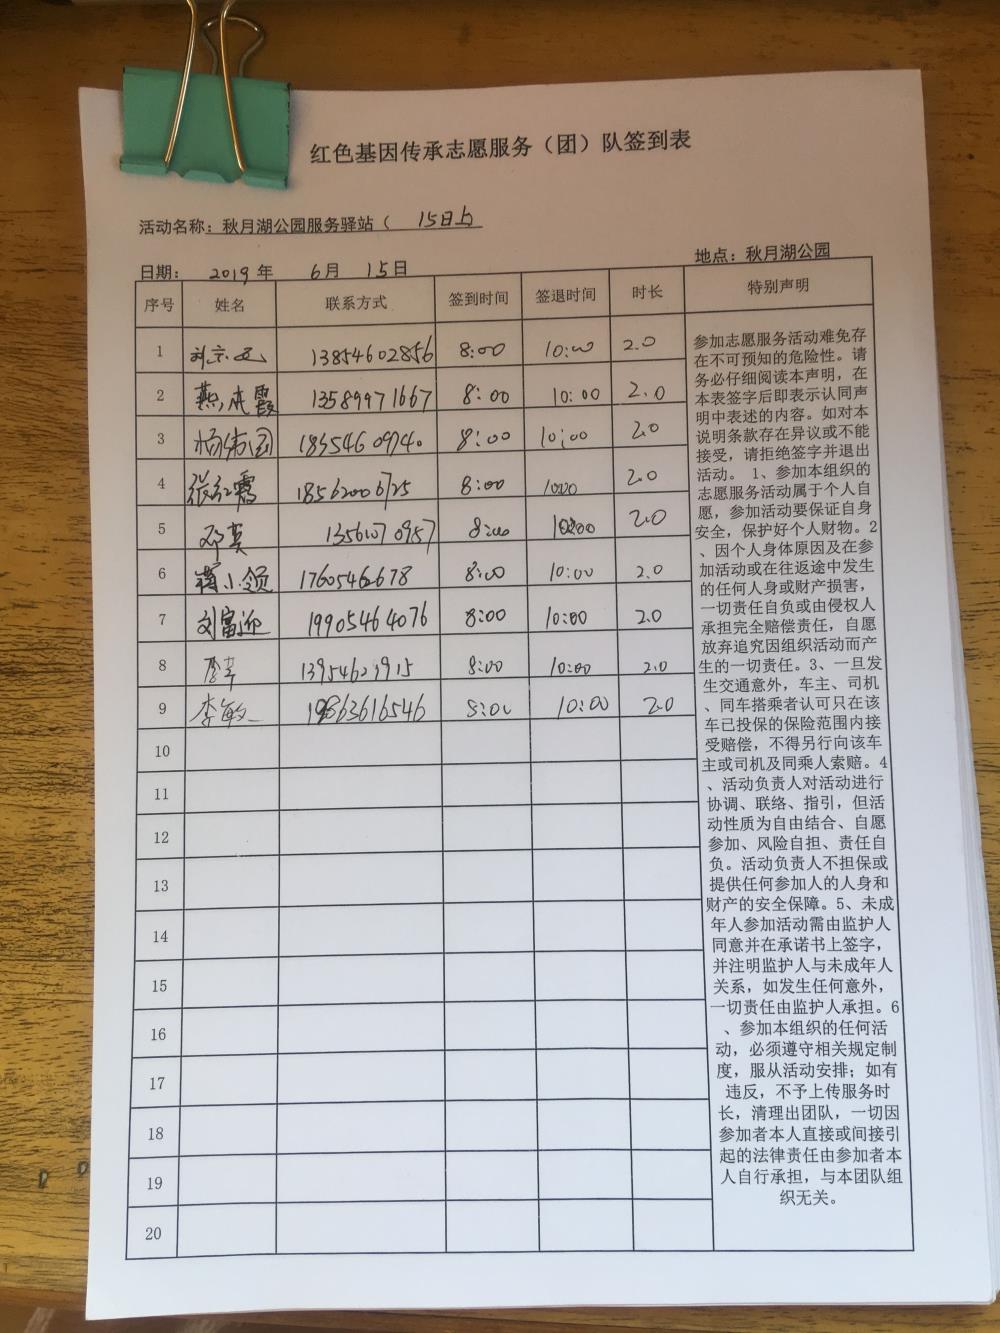 红色基因传承志愿服务（团）队签到表
活动名称：秋月湖公园服务驿站（ 15日上
日期： 2019 年 6月 15日
地点：秋月湖公园
序号 姓名 联系方式 签到时间 签退时间 时长 特别声明
1 13854602856 8:00 10:00 2.0
2 燕成霞 13589971667 8:00 10:00 2.0
3 杨伟国 18354609740 8:00 10:00 2.0
4 张红霞 18562006725 8:00 10:00 2.0
5 邓英 13561070957 8:00 10:00 2.0
6 蒋小领 17605462678 8:00 10:00 2.0
7 刘富迎 19905464076 8:00 10:00 2.0
8 8:00 10:00 2.0
9 李敏 19863616546 8:00 10:00 2.0
10
11
12
13
14
15
16
17
18
19
20
参加志愿服务活动难免存
在不可预知的危险性。请
务必仔细阅读本声明，在
本表签字后即表示认同声
明中表述的内容。如对本
说明条款存在异议或不能
接受，请拒绝签字并退出
活动。 1、参加本组织的
志愿服务活动属于个人自
愿，参加活动要保证自身
安全，保护好个人财物。2
、因个人身体原因及在参
加活动或在往返途中发生
的任何人身或财产损害，
一切责任自负或由侵权人
承担完全赔偿责任，自愿
放弃追究因组织活动而产
生的一切责任。3、一旦发
生交通意外，车主、司机
、同车搭乘者认可只在该
车已投保的保险范围内接
受赔偿，不得另行向该车
主或司机及同乘人索赔。4
、活动负责人对活动进行
协调、联络、指引，但活
动性质为自由结合、自愿
参加、风险自担、责任自
负。活动负责人不担保或
提供任何参加人的人身和
财产的安全保障。5、未成
年人参加活动需由监护人
同意并在承诺书上签字，
并注明监护人与未成年人
关系，如发生任何意外，
一切责任由监护人承担。6
、参加本组织的任何活
动，必须遵守相关规定制
度，服从活动安排；如有
违反，不予上传服务时
长，清理出团队，一切因
参加者本人直接或间接引
起的法律责任由参加者本
人自行承担，与本团队组
织无关。